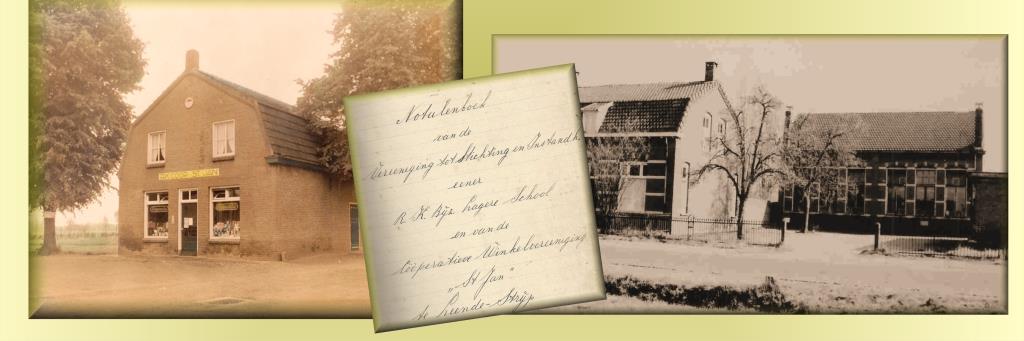 Notulenboek
van de
Vereeniging tot Stichting en Instandh.
eener
R. K. Bijz. Lagere School
en van de
Coöperatieve Winkelvereeniging
„St Jan"
te Leende-Strijp